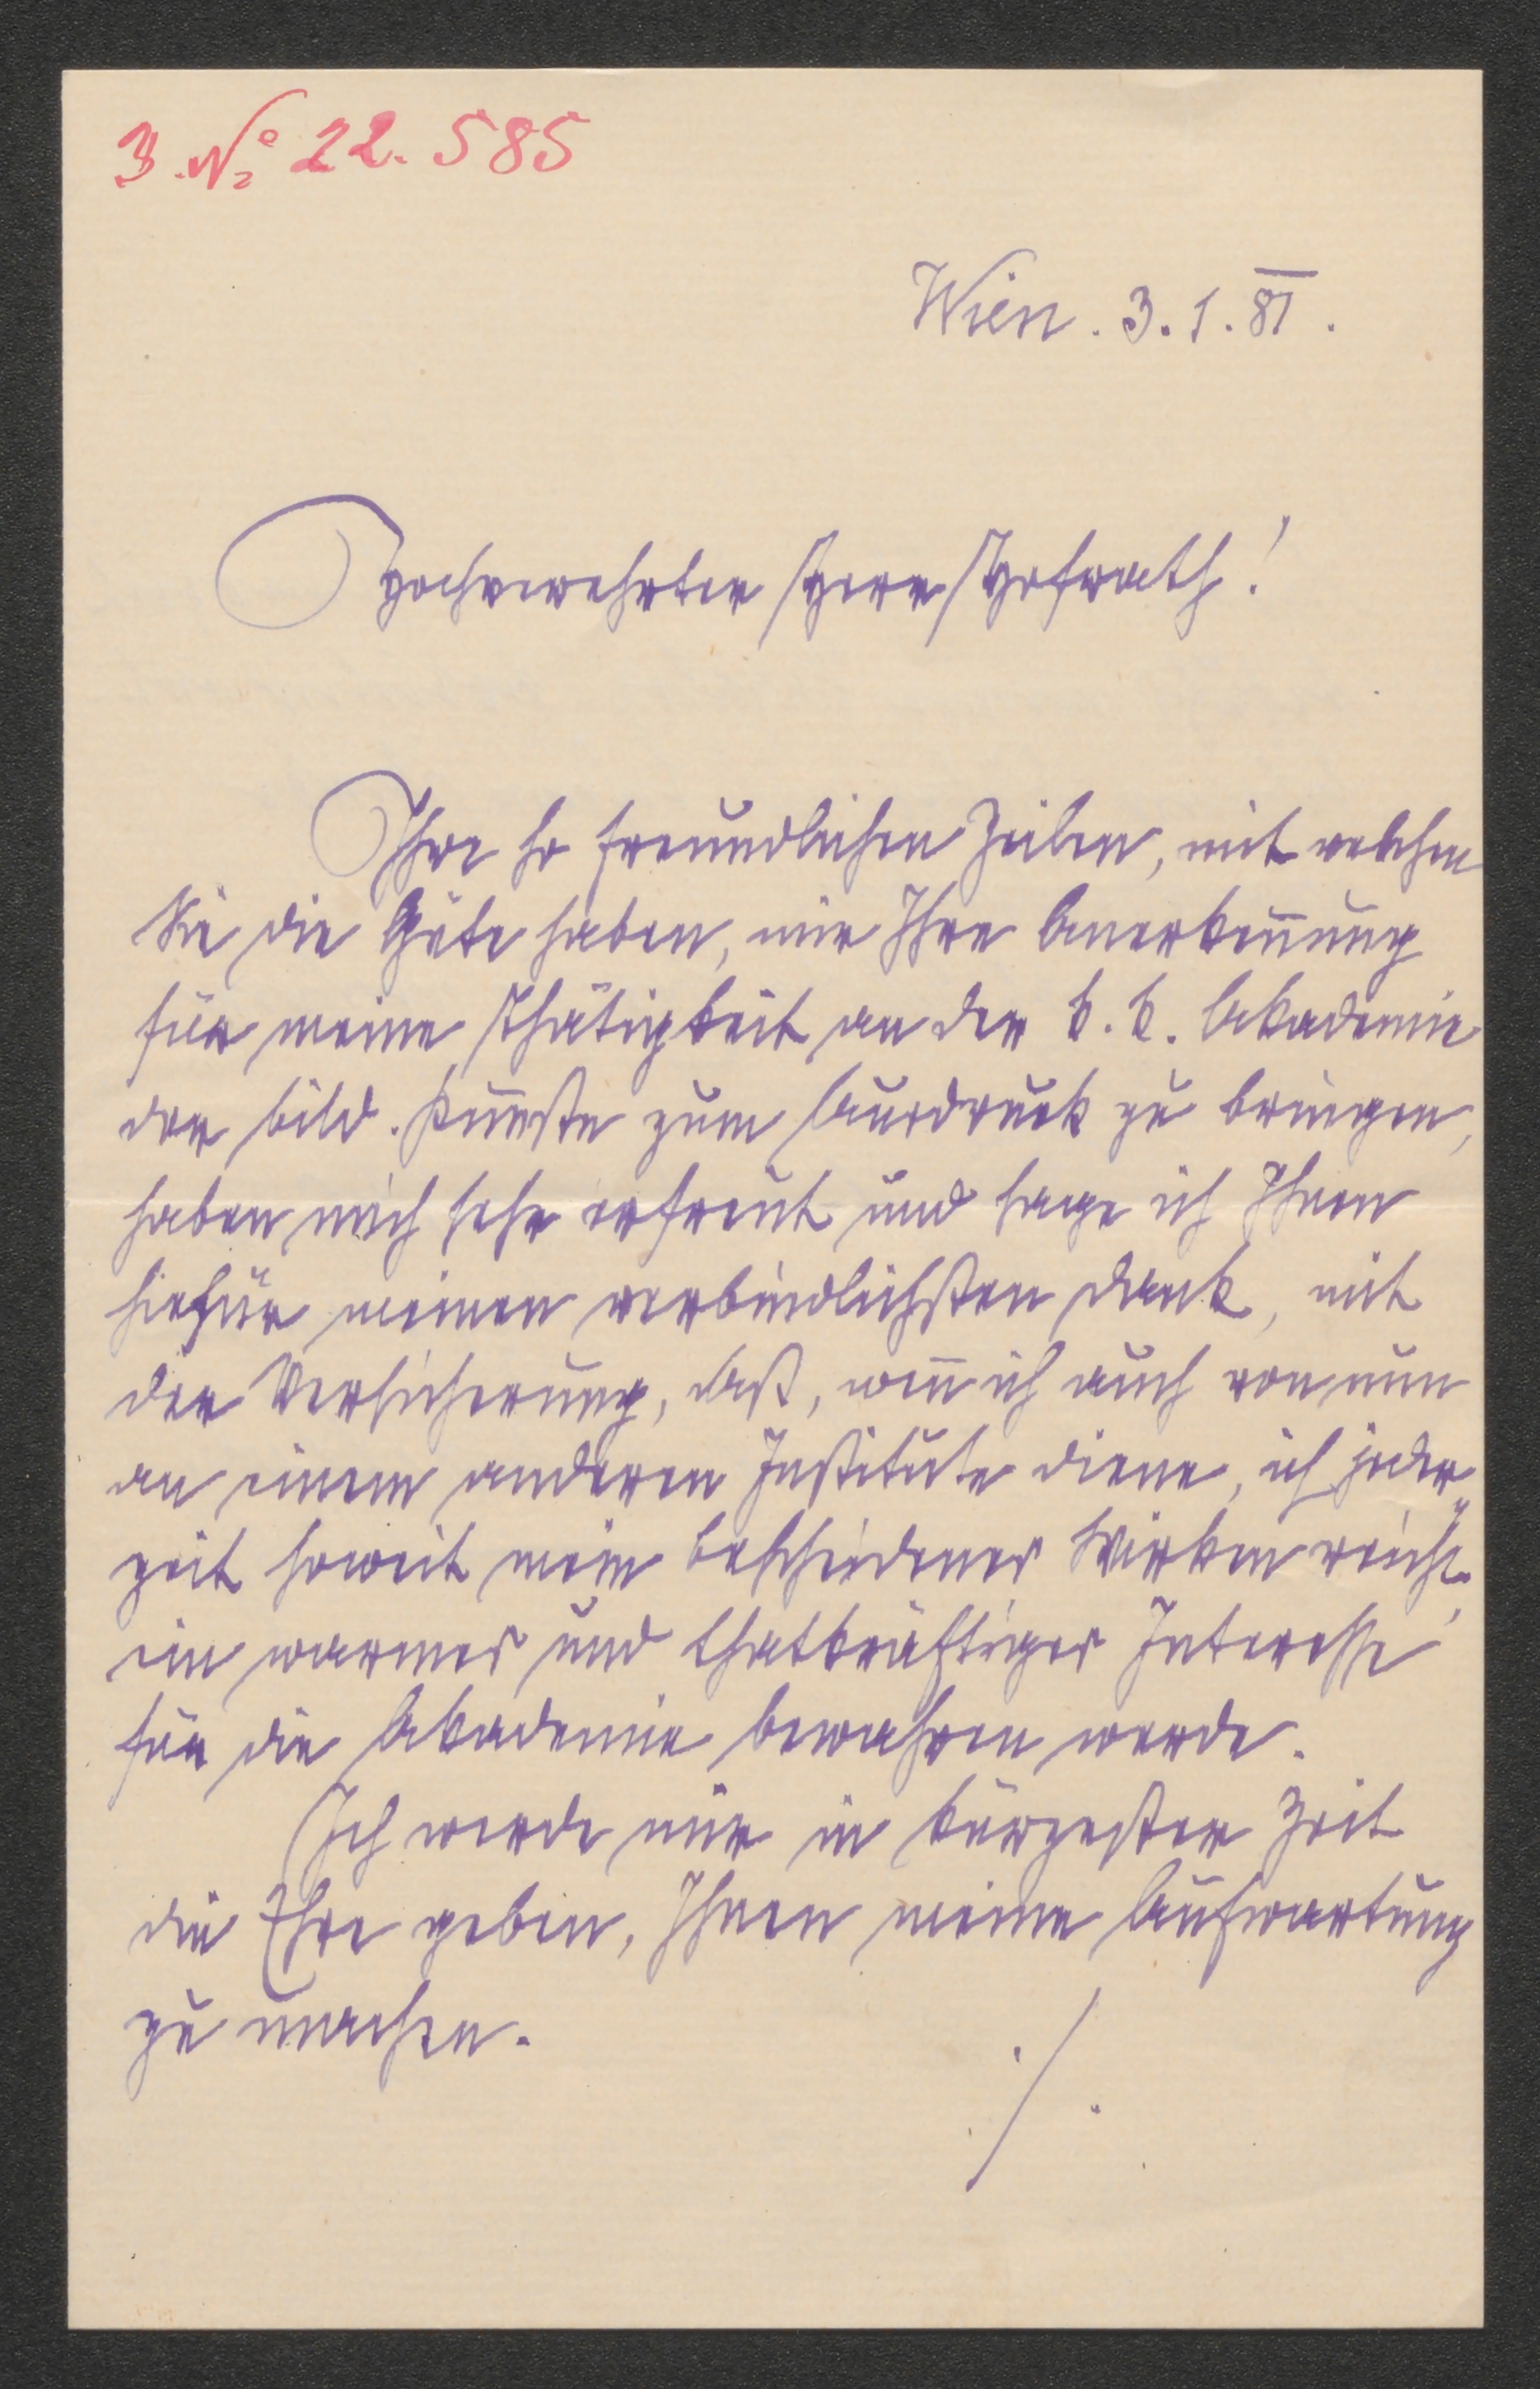 3. № 22.585
Wien. 3.1.81.
Hochverehrter Herr Hofrath!
Ihre so freundlichen Zeilen, mit welchen
Sie die Güte haben, mir Ihre Anerkennung
für meine Thätigkeit an der k. k. Akademie
der bild. Künste zum Ausdruck zu bringen,
haben mich sehr erfreut und sage ich Ihnen
hiefür meinen verbindlichsten Dank, mit
der Versicherung, daß, wenn ich auch von nun
an einem anderen Institute diene, ich jeder„
zeit soweit mein bescheidenes Wirken reicht,
ein warmes und thatkräftiges Interesse
für die Akademie bewahren werde.
Ich werde mir in kürzester Zeit
die Ehre geben, Ihnen meine Aufwartung
zu machen.
./.